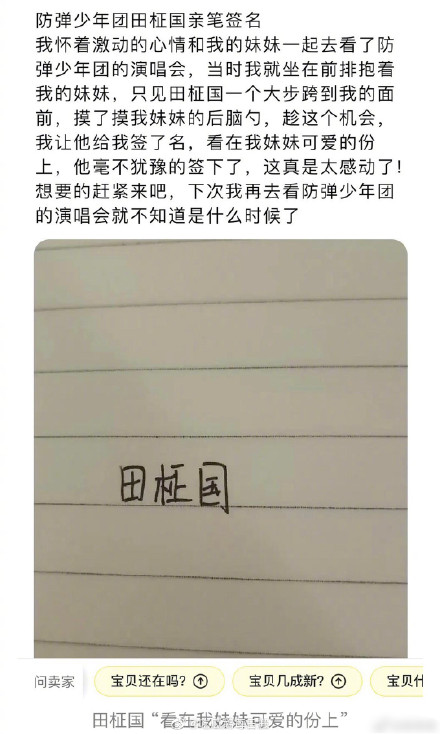 防弹少年团田柾国亲笔签名
我怀着激动的心情和我的妹妹一起去看了防
弹少年团的演唱会，当时我就坐在前排抱着
我的妹妹，只见田柾国一个大步跨到我的面
前，摸了摸我妹妹的后脑勺，趁这个机会，
我让他给我签了名，看在我妹妹可爱的份
上，他毫不犹豫的签下了，这真是太感动了!
想要的赶紧来吧，下次我再去看防弹少年团
的演唱会就不知道是什么时候了
田柾国
问卖家
宝贝还在吗?
宝贝几成新?
宝贝什
田柾国“看在我妹妹可爱的份上”